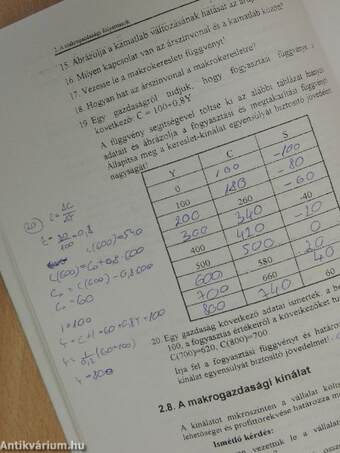 2. A makrogazdasági folyamatok
15. Ábrázolja a kamatláb változásának hatását az
16. Milyen kapcsolat van az árszínvonal és a kamatláb között?
17. Vezesse le a makrokeresleti függvényt!
18. Hogyan hat az árszínvonal a makrokeresletre?
19. Egy gazdaságról tudjuk, hogy fogyasztási függvénye
következő: C = 100+0,8Y
A függvény segítségével töltse ki az alábbi táblázat hiányzó
adatait és ábrázolja a fogyasztási és megtakarítási függvényt
Állapítsa meg a kereslet-kínálat egyensúlyát biztosító jövedelem
nagyságát!
Y C S
0 100 -100
100 180 -80
200 260 -60
300 340 -40
400 420 -20
500 500 0
600 580 20
700 660 40
800 740 60
20. Egy gazdaság következő adatai ismertek: a be
100, a fogyasztás értékeiről a következőket tu
C(700)=620, C(800)=700.
Írja fel a fogyasztási függvényt és határoz
kínálat egyensúlyát biztosító jövedelmet!
2.8. A makrogazdasági kínálat
A kínálatot mikroszinten a vállalat köl
lehetőségei és profittörekvése határozza me
Ismétlő kérdés:
vezettük le a vállalat
20
C(600)=540
C0=60
I=100
Y=800
Antikvárium.hu